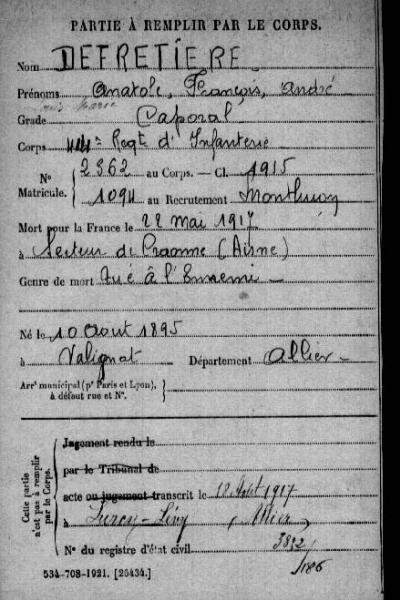 PARTIE À REMPLIR PAR LE CORPS.
Nom DEFRETIÈRE
Prénoms Anatole, François, André
Marie
Grade Caporal
Corps Regt d'Infanterie
N° 2362 au Corps. — Cl. 1915
Matricule. 1094 au Recrutement Montluçon
Mort pour la France le 22 mai 1917
à Secteur de Craonne (Aisne)
Genre de mort Tué à l'Ennemi
Né le 10 Août 1895
à Valignat Département Allier
Arrᵗ municipal (pʳ Paris et Lyon),
à défaut rue et N°.
Cette partie
n'est pas à remplir
par le Corps.
Jugement rendu le
par le Tribunal de
acte ou jugement transcrit le 18 Août 1917
à Lurcy-Lévy (Allier)
N° du registre d'état civil 3832/186
534-708-1921. [26434.]